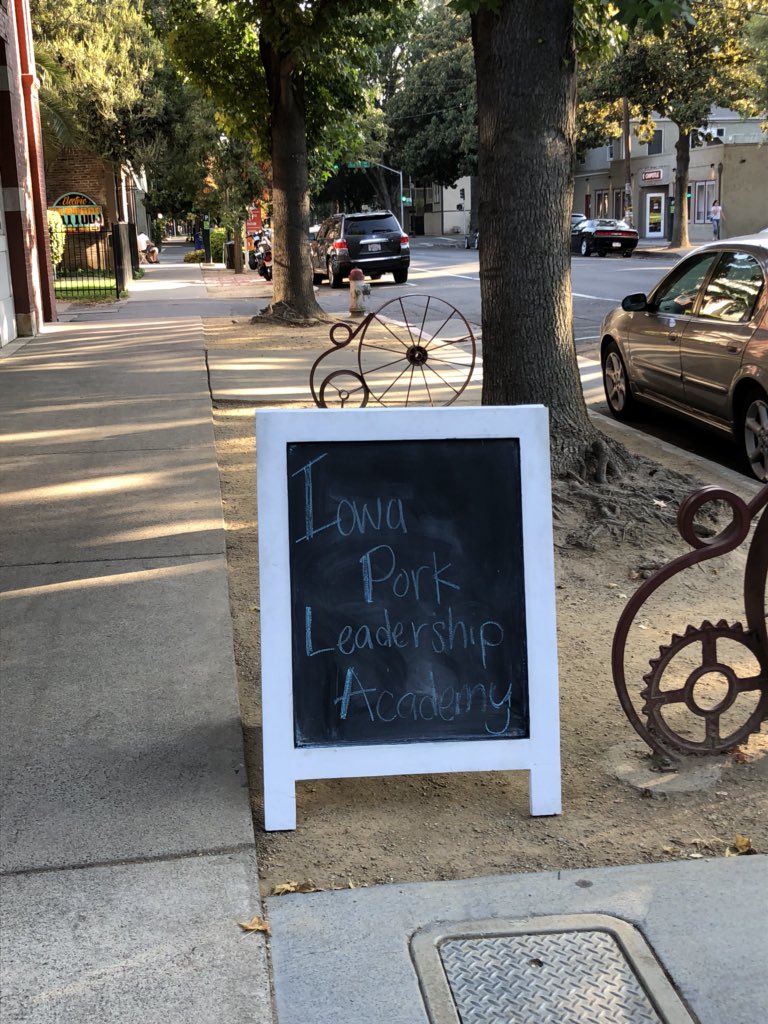 Iowa
Pork
Leadership
Academy
CHIPOTLE